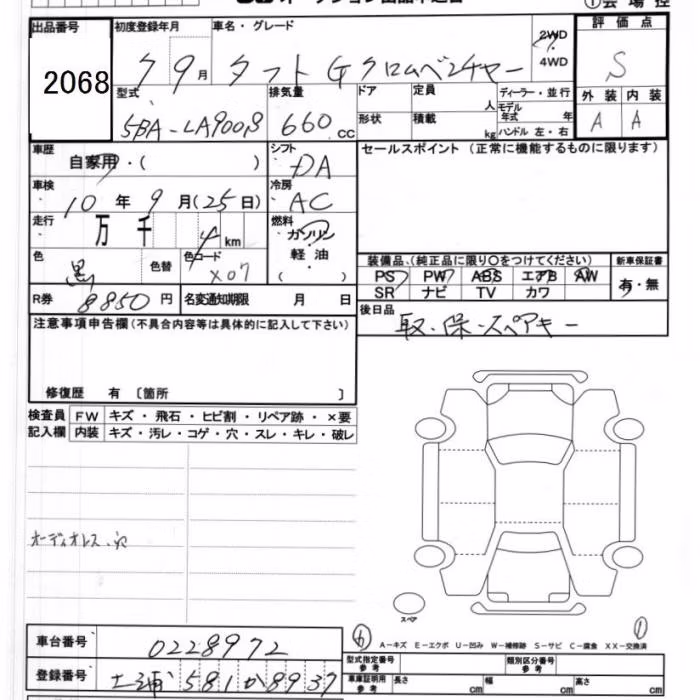 オークション出品申込書
①会場控
出品番号
2068
初度登録年月
7 9月
車名・グレード
タフト G クロムベンチャー
2WD
4WD
評価点
S
型式
5BA-LA900S
排気量
660 cc
ドア
形状
定員 人
積載 kg
ディーラー・並行
モデル年式 年
ハンドル 左・右
外装 内装
A A
車歴
自家用・( )
シフト
DA
セールスポイント(正常に機能するものに限ります)
車検
10年9月(25日)
冷房
AC
走行
万 千 4 km
燃料
ガソリン・
軽油・
( )
色
黒
色替
色コード
X07
装備品、(純正品に限り○をつけてください)
PS PW ABS エアB AW
SR ナビ TV カワ
新車保証書
有・無
R券
8850円
名変通知期限 月 日
後日品
取・保・スペアキー
注意事項申告欄(不具合内容等は具体的に記入して下さい)
修復歴 有 〔箇所 〕
検査員
記入欄
FW キズ・飛石・ヒビ割・リペア跡・×要
内装 キズ・汚レ・コゲ・穴・スレ・キレ・破レ
オーディオレス.穴
スペア
⑥
①
A-キズ E-エクボ U-凹み W-補修跡 S-サビ C-腐食 XX-交換済
車台番号
0228972
登録番号
土浦 581 か 8937
型式指定番号
参考
類別区分番号
参考
車庫証明用
参考
長さ cm 幅 cm 高さ cm